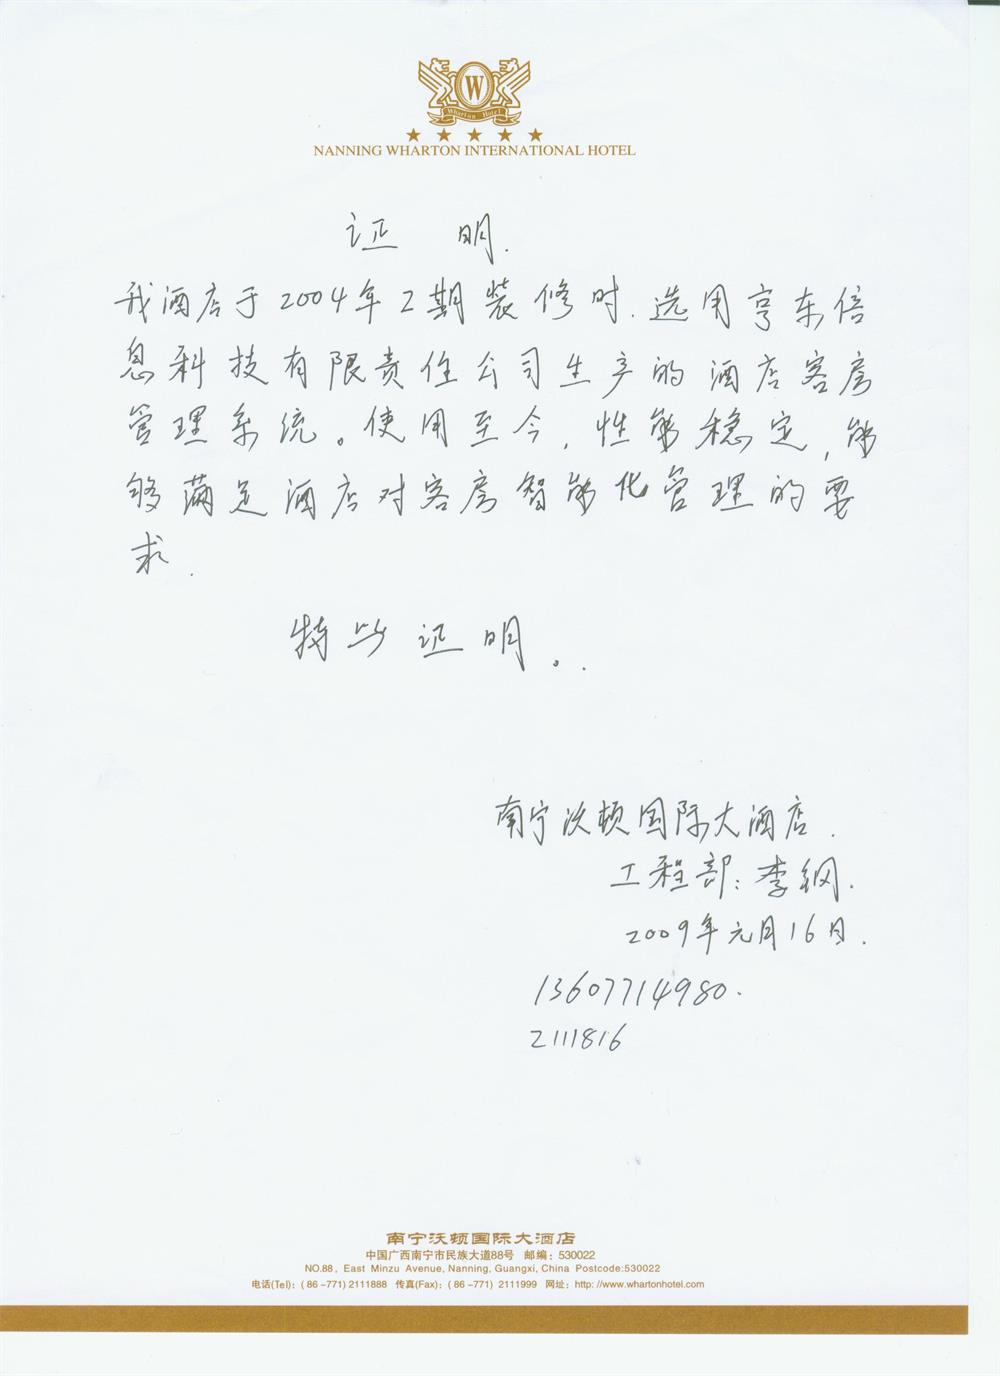 W
Wharton Hotel
★ ★ ★ ★ ★
NANNING WHARTON INTERNATIONAL HOTEL
证 明.
我酒店于2004年2期装修时.选用亨东信
息科技有限责任公司生产的酒店客房
管理系统。使用至今,性能稳定,能
够满足酒店对客房智能化管理的要
求.
特此证明。.
南宁沃顿国际大酒店.
工程部:李钢.
2009年元月16日.
13607714980.
2111816
南宁沃顿国际大酒店
中国广西南宁市民族大道88号 邮编:530022
NO.88, East Minzu Avenue, Nanning, Guangxi, China Postcode:530022
电话(Tel):(86-771) 2111888 传真(Fax):(86-771) 2111999 网址:http://www.whartonhotel.com